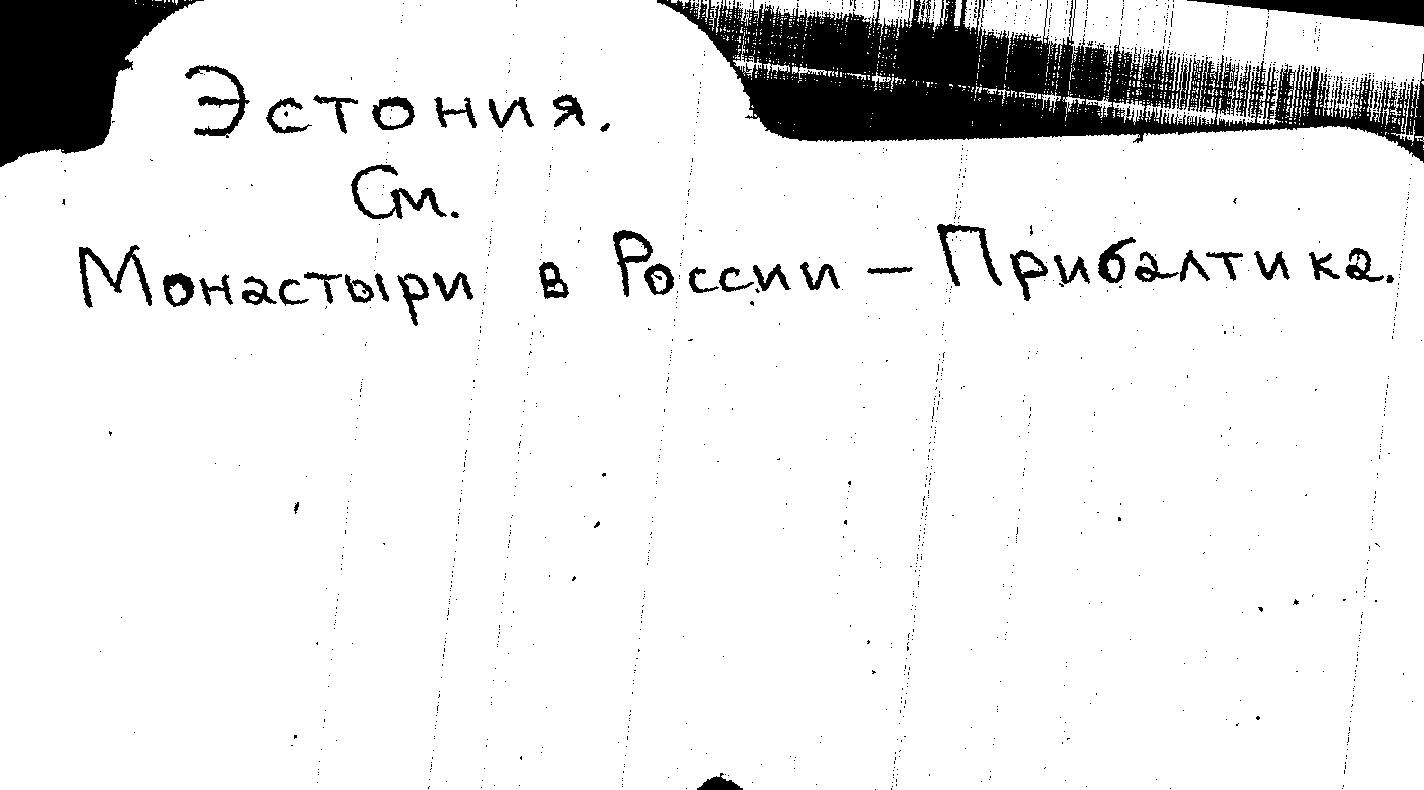 Эстония.
См.
Монастыри в России — Прибалтика.